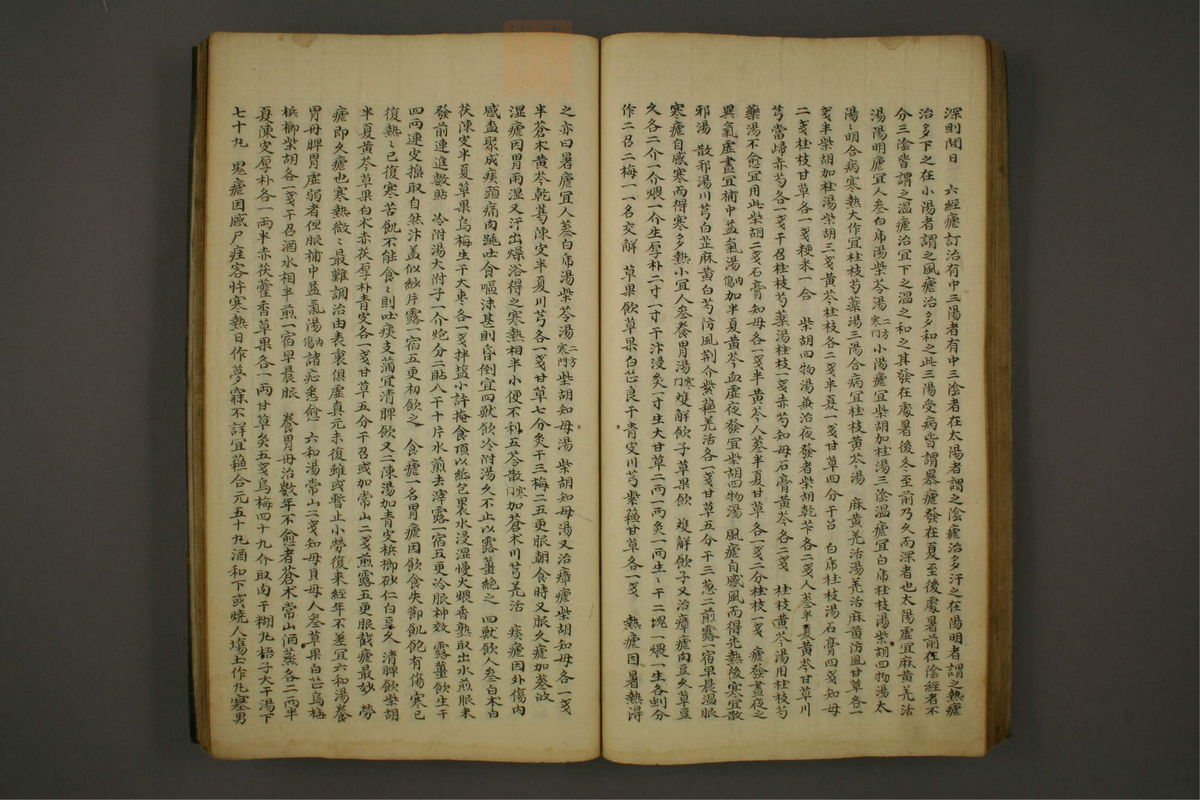 深則間日 六經瘧訂治有中三陽者有中三陰者在太陽者謂之陰瘧治多汗之在陽明者謂之熱瘧
治多下之在小陽者謂之風瘧治多和之此三陽受病皆謂暴瘧發在夏至後處暑前在陰經者不
分三陰皆謂之溫瘧治宜下之溫之和之其發在處暑後冬至前乃久而深者也太陽虛宜麻黃羌活
湯陽明瘧宜人參白席湯柴苓湯二方寒門小陽瘧宜柴胡加桂湯三陰溫瘧宜白席桂枝湯柴胡四物湯太
陽〻明合病寒熱大作宜桂枝芍藥湯三陽合病宜桂枝黃芩湯 麻黃羌活湯羌活麻黃防風甘草各一
戔半柴胡加桂湯柴胡三戔黃芩桂枝各二戔半夏一戔甘草四分干召 白席桂枝湯石膏四戔知母
二戔桂枝甘草各一戔粳米一合 柴胡四物湯兼治夜發者柴胡乾芐各二戔人參半夏黃芩甘草川
芎當歸赤芍各一戔干召桂枝芍藥湯桂枝一戔赤芍知母石膏黃芩各二戔 桂枝黃芩湯用桂枝芍
藥湯不愈宜用此柴胡二戔石膏知母各一戔半黃芩人參半夏甘草各一戔二分桂枝一戔 瘧發晝夜之
異氣虛晝宜補中益氣湯內傷加半夏黃芩血虛夜發宜柴胡四物湯 風瘧自感風而得先熱後寒宜散
邪湯 散邪湯川芎白芷麻黃白芍防風荊介紫蘓羌活各一戔甘草五分干三葱二煎露一宿早晨溫服
寒瘧自感寒而得寒多熱小宜人參養胃湯寒門䨇解飲子草果飲 䨇解飲子又治瘴瘧肉豆久草豆
久各二介一介煨一介生厚朴二寸一寸干汁浸炙一寸生大甘草二兩一兩炙一兩生〻干二塊一煨一生各剉分
作二召二梅一一名交解 草果飲草果白芷良干青皮川芎紫蘓甘草各一戔 熱瘧因暑熱得
之亦曰暑瘧宜人參白席湯柴苓湯二方寒門柴胡知母湯 柴胡知母湯又治瘴瘧柴胡知母各一戔
半蒼朮黃芩乾葛陳皮半夏川芎各一戔甘草七分炙干三梅二五更服朝食時又服久瘧加參故
湿瘧因胃雨湿又汗出燥浴得之寒熱相半小便不利五苓散寒門加蒼朮川芎羌活 痰瘧因外傷內
感盍聚成痰頭痛肉跳吐食嘔沫甚則昏倒宜四獸飲冷附湯久不止以露薑絶之 四獸飲人參白朮白
茯陳皮半夏草果烏梅生干大棗各一戔拌塩小許掩食頃以紙包裹水浸湿慢火煨香熟取出水煎服未
發前連進數貼 冷附湯大附子一介炮分二貼入干十片水煎去滓露一宿五更冷服神效 露薑飲生干
四兩連皮搗取自然汁盖似紗片露一宿五更初飲之 食瘧一名胃瘧因飲食失節飢飽有傷寒已
復熱〻已復寒苦飢不能食〻則吐痰支滿宜清脾飲又二陳湯加青皮檳榔砂仁白豆久 清脾飲柴胡
半夏黃芩草果白朮赤茯厚朴青皮各一戔甘草五分干召或加常山二戔煎露五更服截瘧最妙 勞
瘧即久瘧也寒熱微〻最難調治由表裏俱虛真元未復雖或暫止小勞復來經年不差宜六和湯養
胃母脾胃虛弱者但服補中益氣湯內傷諸症悉愈 六和湯常山二戔知母貝母人參草果白芷烏梅
檳榔柴胡各一戔干召酒水相半煎一宿早晨服 養胃母治數年不愈者蒼朮常山酒蒸各二兩半
夏陳皮厚朴各一兩半赤茯藿香草果各一兩甘草炙五戔烏梅四十九介取肉干糊丸梧子大干湯下
七十九 鬼瘧因感尸疰客忤寒熱日作夢寐不詳宜蘓合元五十九酒和下或燒人塲土作丸塞男